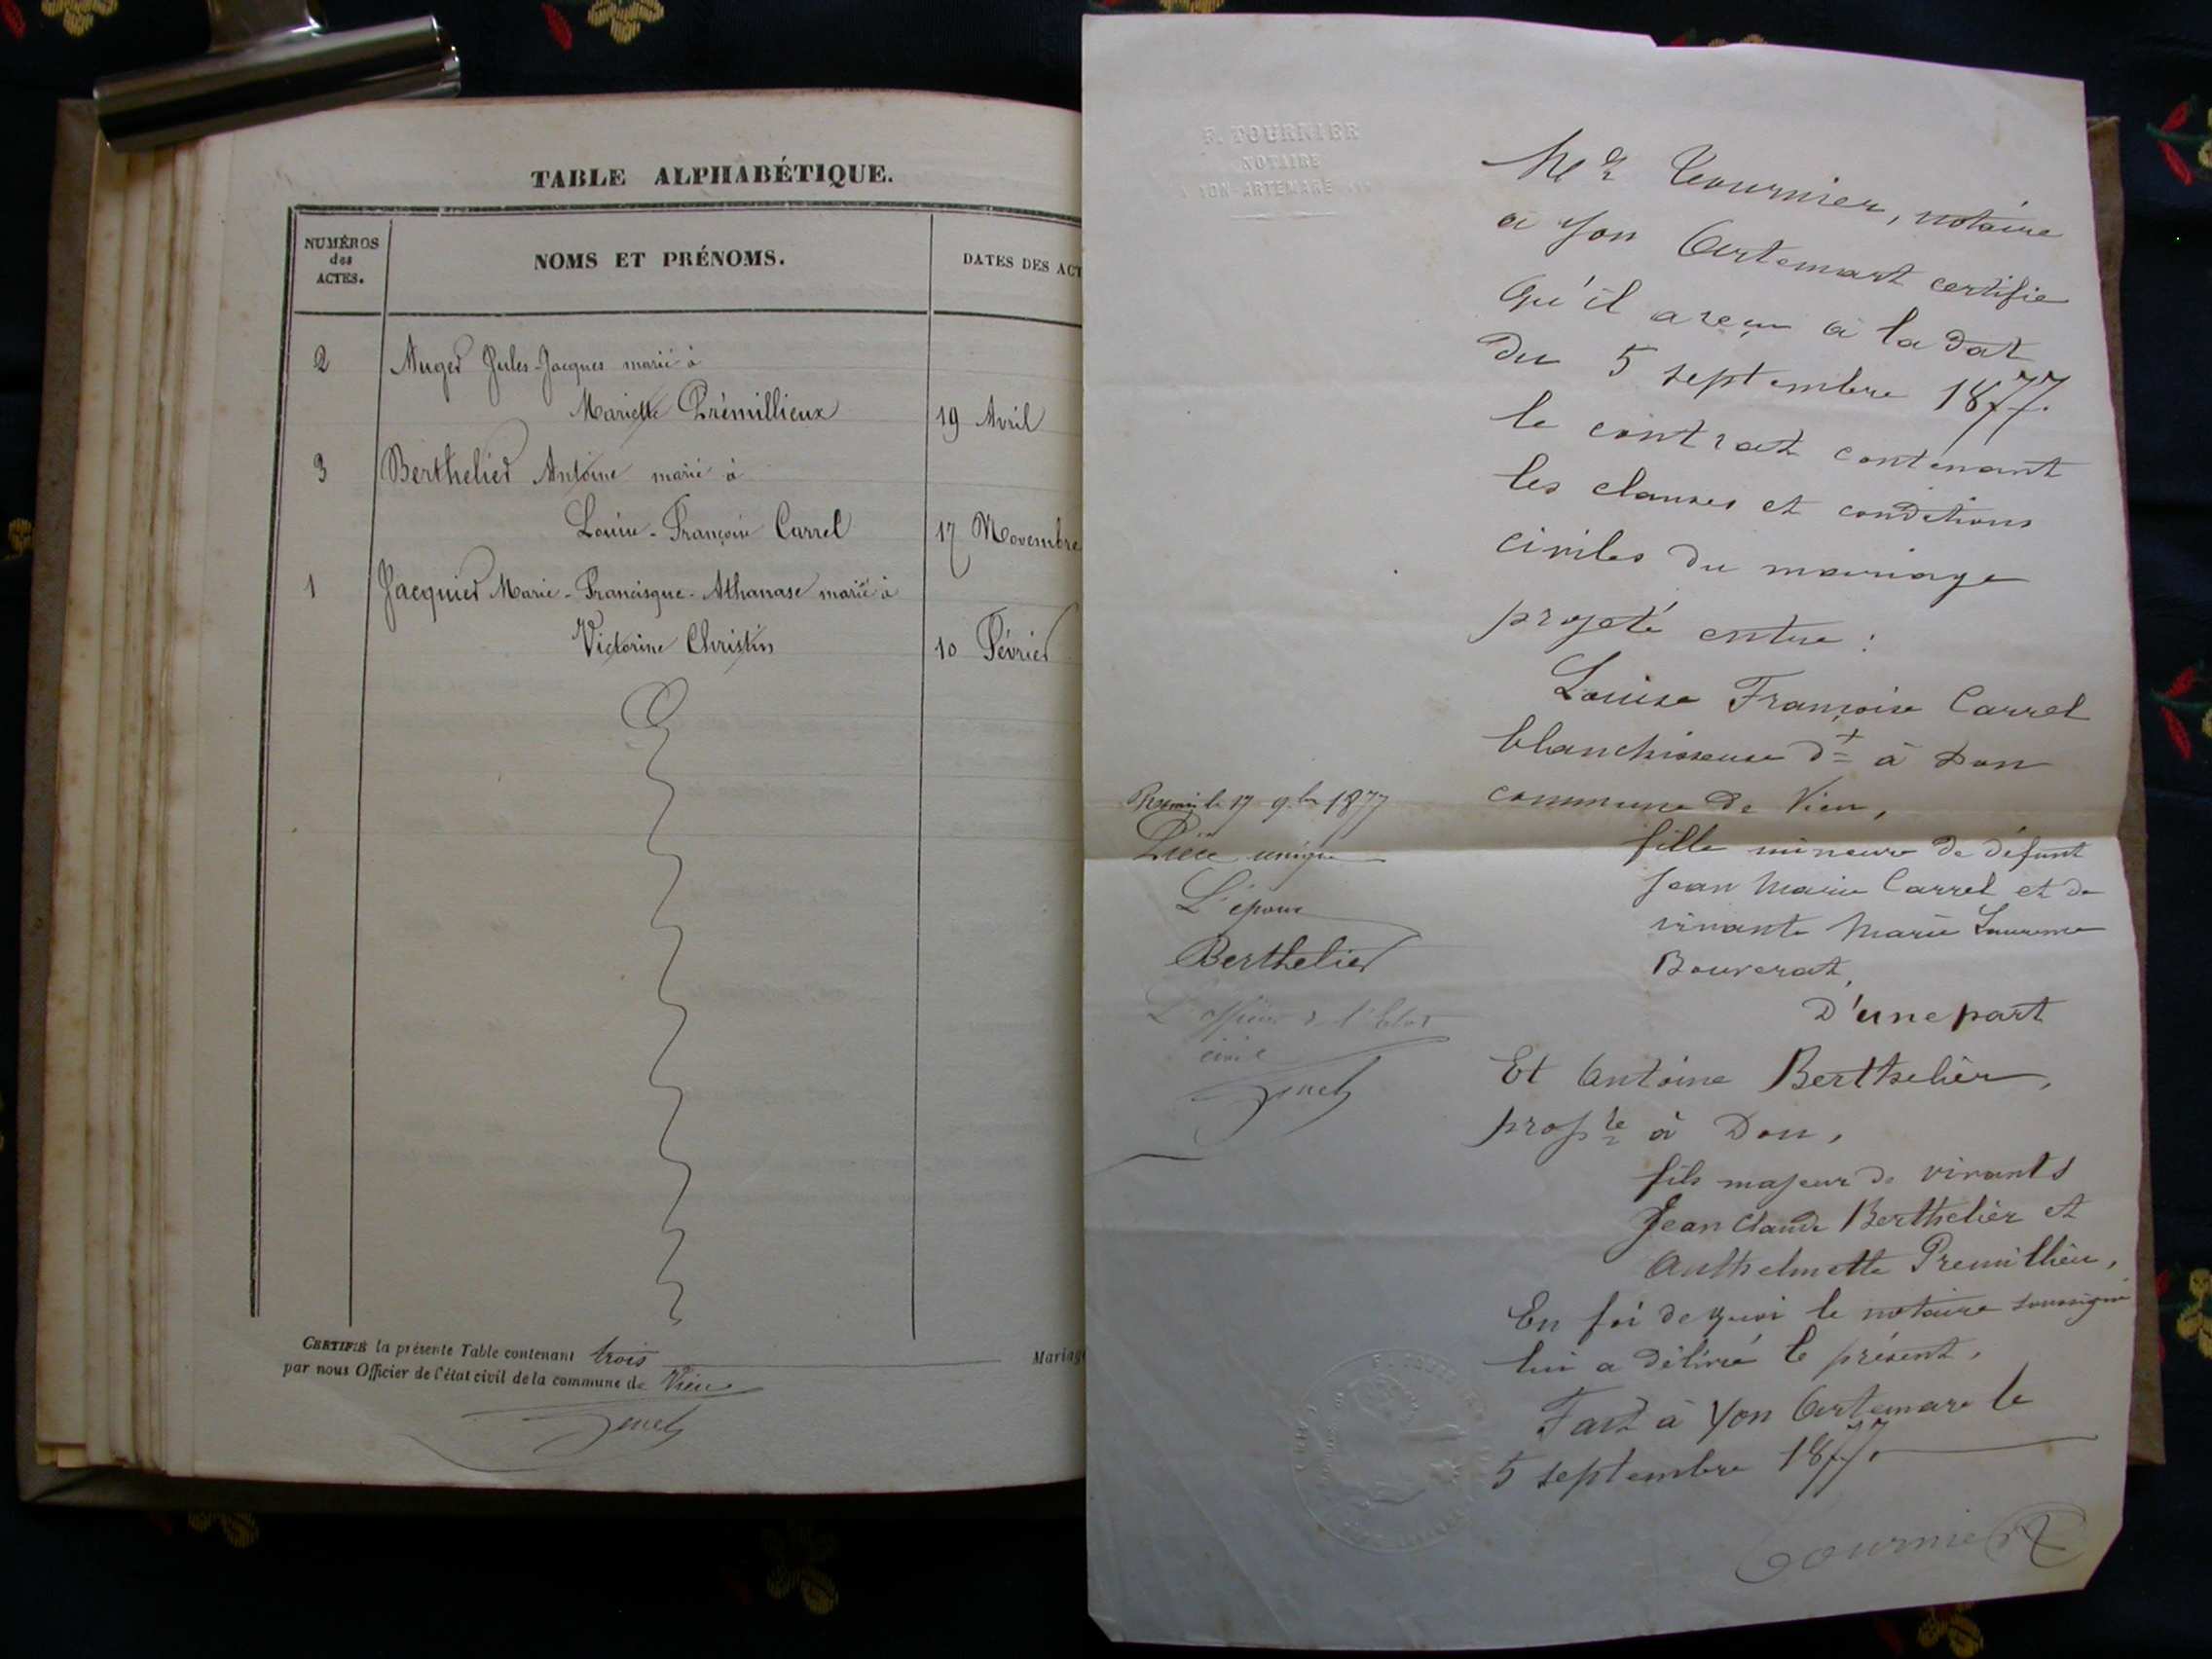 TABLE ALPHABÉTIQUE.
NUMÉROS
des
ACTES.
NOMS ET PRÉNOMS.
DATES DES ACT
2 Auger Jules-Jacques marié à
Mariette Prémillieux 19 Avril
3 Berthelier Antoine marié à
Louise-Françoise Carrel 17 Novembre
1 Jacquier Marie-Francisque-Athanase marié à
Victorine Christin 10 Février
CERTIFIÉ la présente Table contenant trois Mariage
par nous Officier de l'état civil de la commune de Vieu
F. TOURNIER
NOTAIRE
YON-ARTEMARE
Me Tournier, notaire
à Yon Artemart certifie
Qu'il a reçu à la dat
du 5 septembre 1877.
le contrat contenant
les clauses et conditions
civiles du mariage
projeté entre :
Louise Françoise Carrel
blanchisseuse dt à Don
commune de Vieu,
fille mineure de défunt
Jean Marie Carrel et de
vivante Marie Laurence
Bouverat,
D'une part
Et Antoine Berthelier,
propre à Don,
fils majeur de vivants
Jean Claude Berthelier et
Anthelmette Premillieu,
En foi de quoi le notaire soussigné
lui a délivré le présent.
Fait à Yon Artemare le
5 septembre 1877.
Tournier
le 17 9bre 1877
Pièce unique
L'époux
Berthelier
L'officier de l'Etat
civil